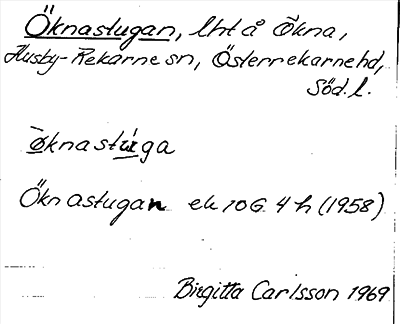 Öknastugan, lht å Ökna,
Husby-Rekarne sn, Österrekarne hd,
Söd. l.
ȫknastùga
Öknastugan ek 10G 4 h (1958)
Birgitta Carlsson 1969